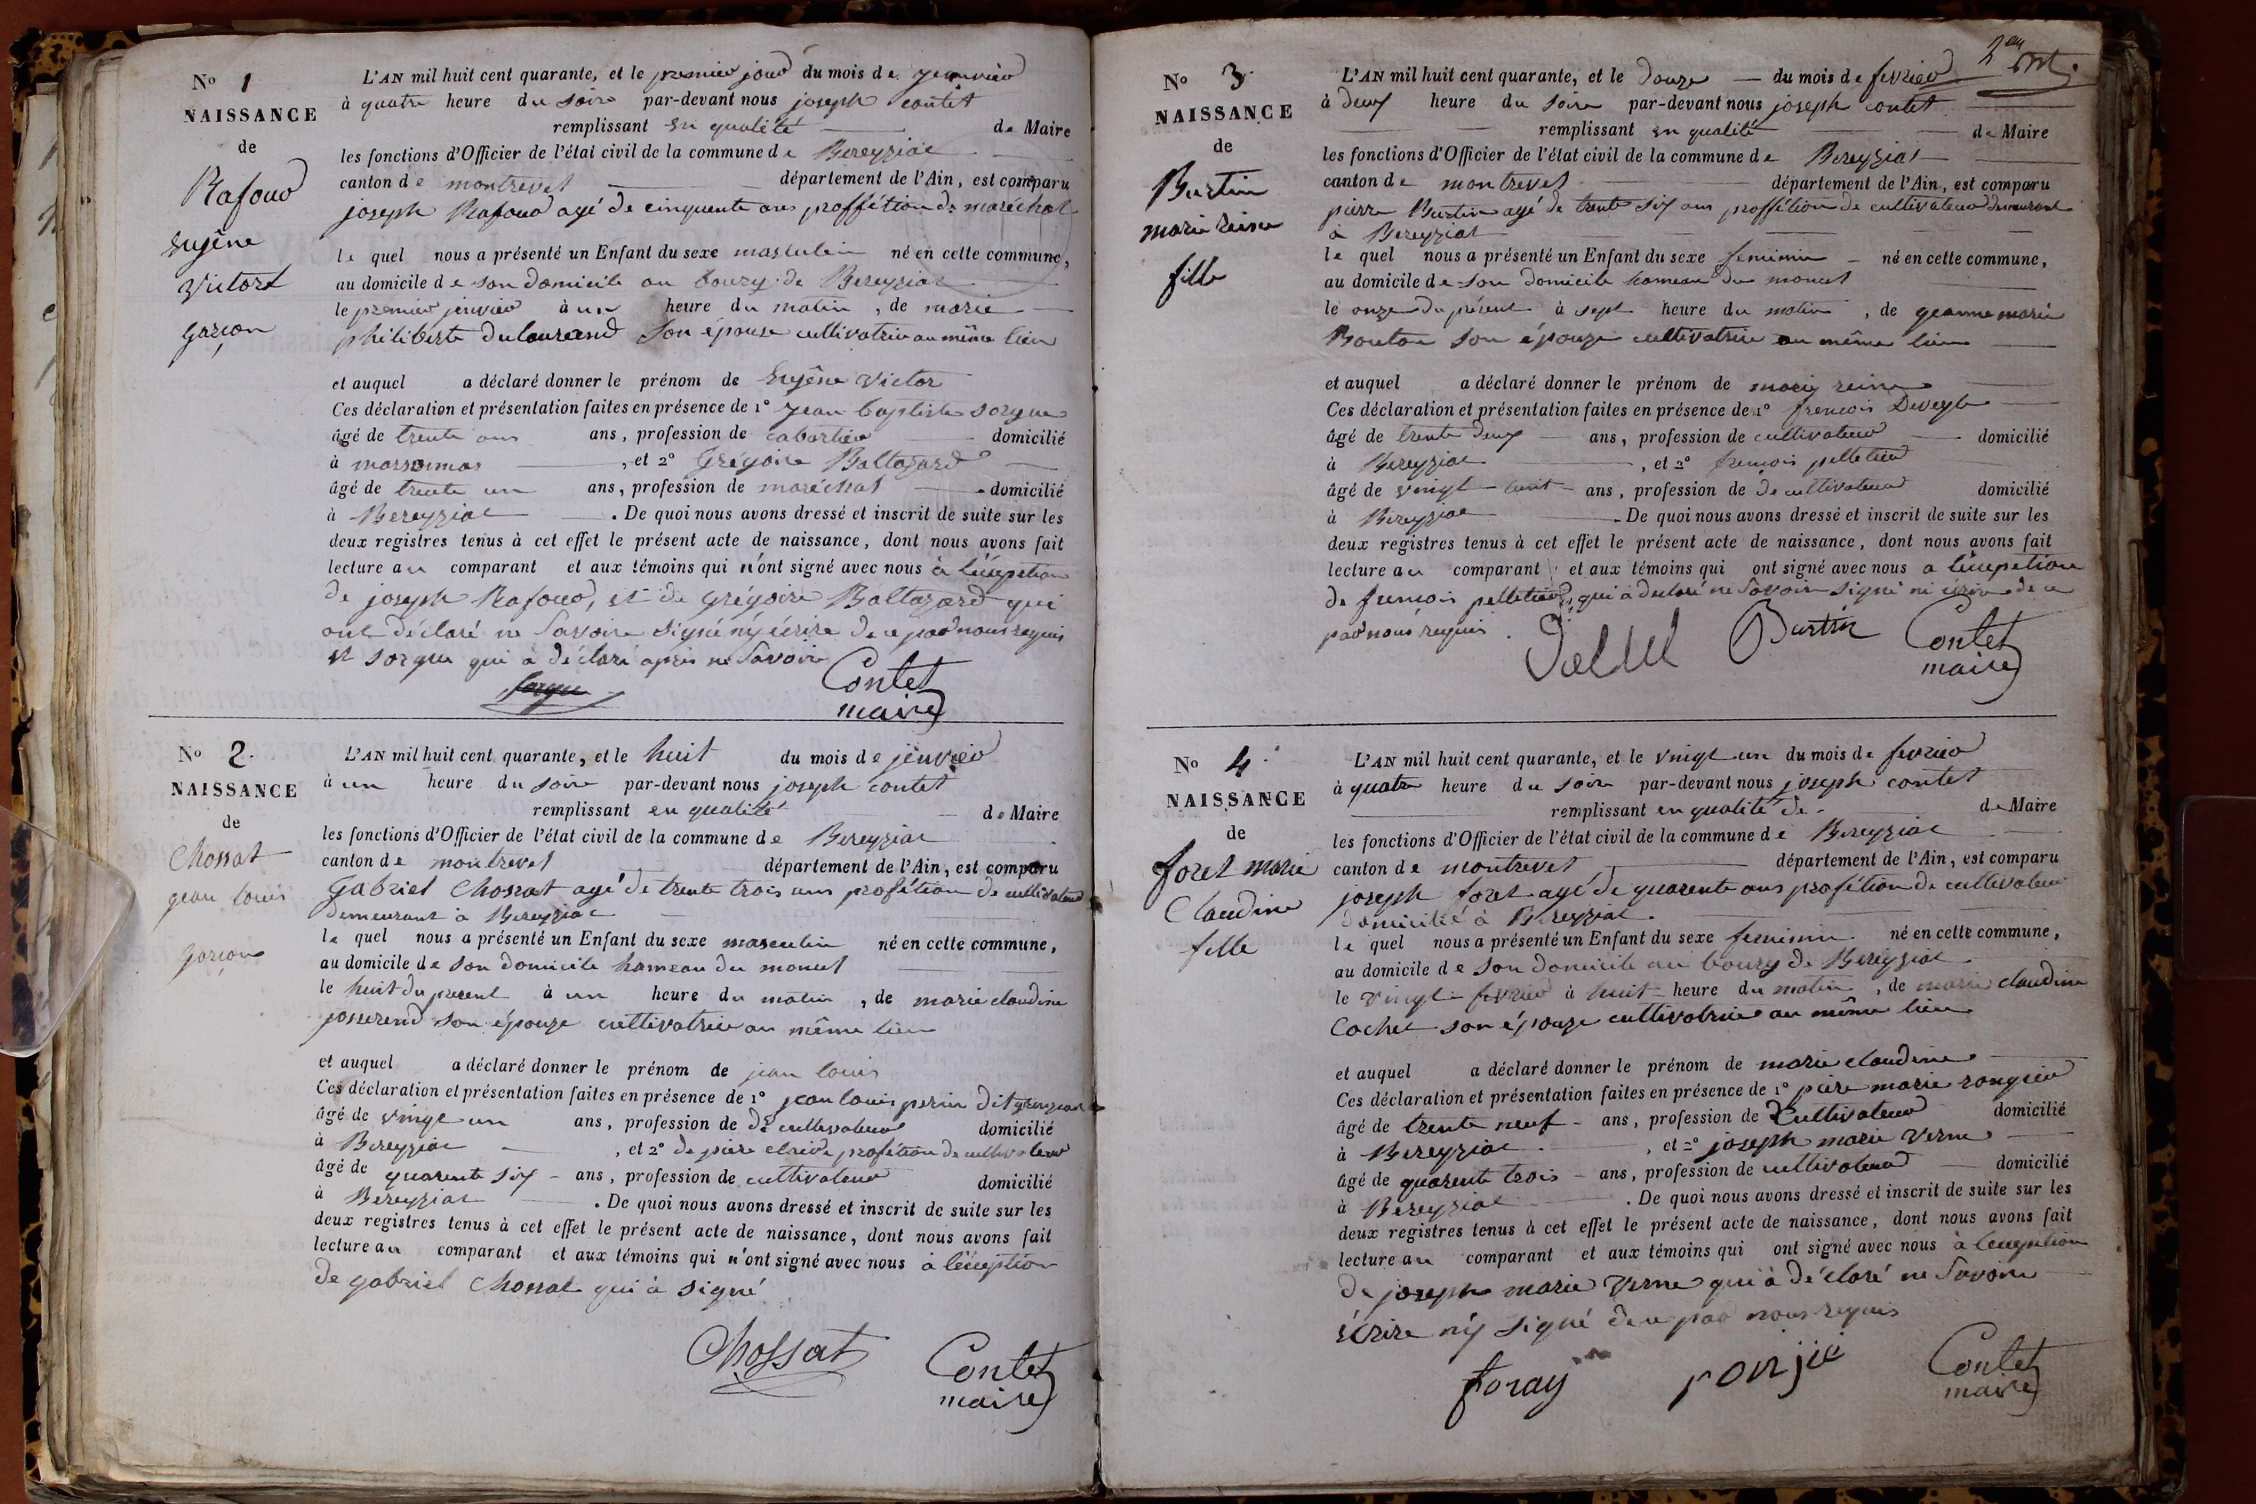 No 1
NAISSANCE
de
Rafoud
Eugêne
Victort
garçon
L'AN mil huit cent quarante, et le premier jour du mois de jenvier
à quatre heure du soire par-devant nous joseph contet
remplissant en qualité de Maire
les fonctions d'Officier de l'état civil de la commune de Bereyziac
canton de montrevel département de l'Ain, est comparu
joseph Rafoud agé de cinquente ans proffétion de maréchal
le quel nous a présenté un Enfant du sexe masculin né en cette commune,
au domicile de son domicile au bourg de Bereyziac
le premier jenvier à un heure du matin, de marie
philiberte dulaurend son épouse cultivatrice au même lieu
et auquel a déclaré donner le prénom de Eugêne Victor
Ces déclaration et présentation faites en présence de 1° jean baptiste sorgue
âgé de trente ans ans, profession de cabartier domicilié
à marsonnas, et 2° Grégoire Baltazard
âgé de trente un ans, profession de maréchal domicilié
à Bereyziac. De quoi nous avons dressé et inscrit de suite sur les
deux registres tenus à cet effet le présent acte de naissance, dont nous avons fait
lecture au comparant et aux témoins qui n'ont signé avec nous à léxeption
de joseph Rafoud, et de grégoire Baltazard qui
ont déclaré ne savoire signé ny écrire de ce par nous requis
et sorgue qui à déclaré après ne savoir
Sorgue
Contet
maire
No 2.
NAISSANCE
de
Chossat
jean louis
garçon
L'AN mil huit cent quarante, et le huit du mois de jenvier
à un heure du soire par-devant nous joseph contet
remplissant en qualité de Maire
les fonctions d'Officier de l'état civil de la commune de Bereyziac
canton de montrevel département de l'Ain, est comparu
Gabriel Chossat agé de trente trois ans profétion de cultivateur
demeurant à Bereyziac
le quel nous a présenté un Enfant du sexe masculin né en cette commune,
au domicile de son domicile hameau du moncel
le huit du present à un heure du matin, de marie claudine
josserend son épouze cultivatrice au même lieu
et auquel a déclaré donner le prénom de jean louis
Ces déclaration et présentation faites en présence de 1° jean louis perrin dit
âgé de vingt un ans, profession de de cultivateur domicilié
à Bereyziac, et 2° de piere profétion de cultivateur
âgé de quarente six ans, profession de cultivateur domicilié
à Bereyziac. De quoi nous avons dressé et inscrit de suite sur les
deux registres tenus à cet effet le présent acte de naissance, dont nous avons fait
lecture au comparant et aux témoins qui n'ont signé avec nous à léxeption
de gabriel chossat qui à signé
Chossat
Contet
maire
2eme
No 3.
NAISSANCE
de
Burtin
marie reine
fille
L'AN mil huit cent quarante, et le douze du mois de fevrier
à deux heure du soire par-devant nous joseph contet
remplissant en qualité de Maire
les fonctions d'Officier de l'état civil de la commune de Bereyziat
canton de montrevel département de l'Ain, est comparu
pierre Burtin agé de trente six ans proffétion de cultivateur demeurant
à Bereyziat
le quel nous a présenté un Enfant du sexe feminin né en cette commune,
au domicile de son domicile hameau du moncel
le onze du présent à sept heure du matin, de jeanne marie
Bouton son épouze cultivatrice au même lieu
et auquel a déclaré donner le prénom de marie reine
Ces déclaration et présentation faites en présence de 1° francois Deveyle
âgé de trente deux ans, profession de cultivateur domicilié
à Bereyziac, et 2° francois pelletier
âgé de vingt huit ans, profession de de cultivateur domicilié
à Bereyziac. De quoi nous avons dressé et inscrit de suite sur les
deux registres tenus à cet effet le présent acte de naissance, dont nous avons fait
lecture au comparant et aux témoins qui ont signé avec nous a léxeption
de francois pelletier qui à declaré ne savoir signé ni écrire de ce
par nous requis.
Burtin
Contet
maire
No 4.
NAISSANCE
de
foret marie
Claudine
fille
L'AN mil huit cent quarante, et le vingt un du mois de fevrier
à quatre heure du soire par-devant nous joseph contet
remplissant en qualité de de Maire
les fonctions d'Officier de l'état civil de la commune de Bereyziac
canton de montrevel département de l'Ain, est comparu
joseph foret agé de quarente ans profétion de cultivateur
domicilié à Bereyziat.
le quel nous a présenté un Enfant du sexe feminin né en cette commune,
au domicile de son domicile au bourg de Bereyziac
le vingt fevrier à huit heure du matin, de marie claudine
Cochet son épouze cultivatrice au même lieu
et auquel a déclaré donner le prénom de marie claudine
Ces déclaration et présentation faites en présence de 1° piere marie rongier
âgé de trente neuf ans, profession de cultivateur domicilié
à Bereyziac, et 2° joseph marie verne
âgé de quarente trois ans, profession de cultivateur domicilié
à Bereyziac. De quoi nous avons dressé et inscrit de suite sur les
deux registres tenus à cet effet le présent acte de naissance, dont nous avons fait
lecture au comparant et aux témoins qui ont signé avec nous à léxeption
de joseph marie verne qui à déclaré ne savoire
écrire ny signé de ce par nous requis
foray
ronjié
Contet
maire